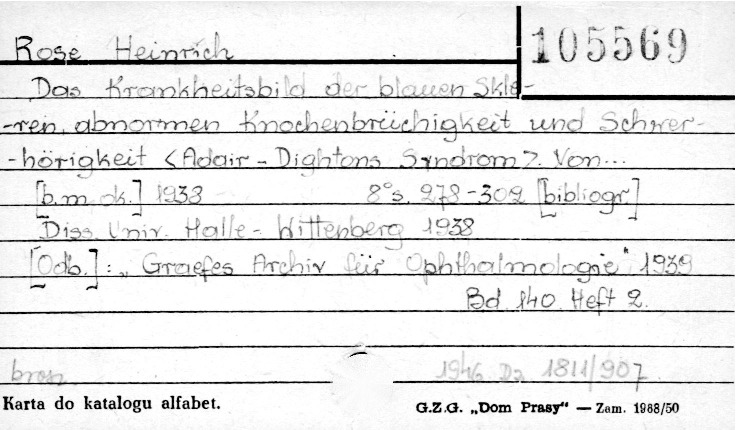 105569
Rose Heinrich
Das Krankheitsbild der blauen Skle-
-ren, abnormen Knochenbrüchigkeit und Schwer-
-hörigkeit <Adair - Dightons Syndrom>. Von...
[b.m. dk.] 1938 8° s. 278-302 [bibliogr.]
Diss. Univ. Halle - Wittenberg 1938
[Odb.]: „Graefes Archiv für Ophthalmologie" 1939
Bd 140 Heft 2.
brosz. 1946 Dz 1811/907
Karta do katalogu alfabet. G.Z.G. „Dom Prasy" — Zam. 1988/50